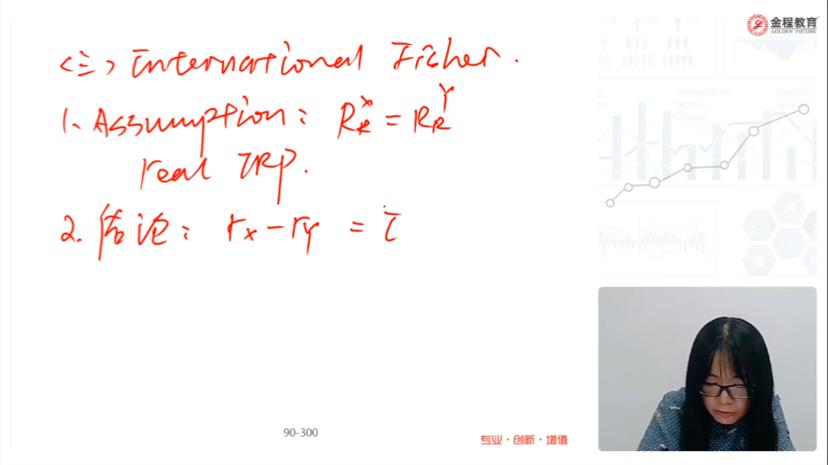 金程教育
GOLDEN FUTURE
<三> International Fisher.
1. Assumption: R_R^X = R_R^Y
real IRP.
2. 结论: r_x - r_y = i
90-300
专业·创新·增值